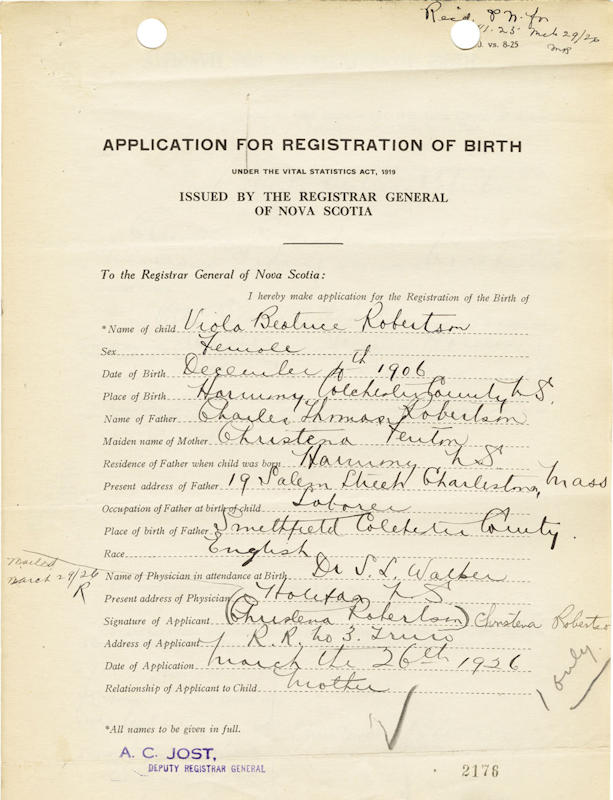 Recd. P.N. for
11.25 Mch 29/26
vs. 8-25
APPLICATION FOR REGISTRATION OF BIRTH
UNDER THE VITAL STATISTICS ACT, 1919
ISSUED BY THE REGISTRAR GENERAL
OF NOVA SCOTIA
To the Registrar General of Nova Scotia:
I hereby make application for the Registration of the Birth of
*Name of child Viola Beatrice Robertson
Sex Female
Date of Birth December th 1906
Place of Birth Harmony Colchester County N.S.
Name of Father Charles Thomas Robertson
Maiden name of Mother Christena Fenton
Residence of Father when child was born Harmony N S
Present address of Father 19 Salem Street Charlestown, Mass
Occupation of Father at birth of child Laborer
Place of birth of Father Smithfield Colchester County.
Race English
Mailed
March 29/26
R
Name of Physician in attendance at Birth Dr S. L. Walker
Present address of Physician Halifax N.S.
Signature of Applicant (Christena Robertson) Christena Robertson
Address of Applicant R. R. No 3. Truro
Date of Application March the 26th 1926
1 only.
Relationship of Applicant to Child Mother
*All names to be given in full.
A. C. JOST,
DEPUTY REGISTRAR GENERAL
2176